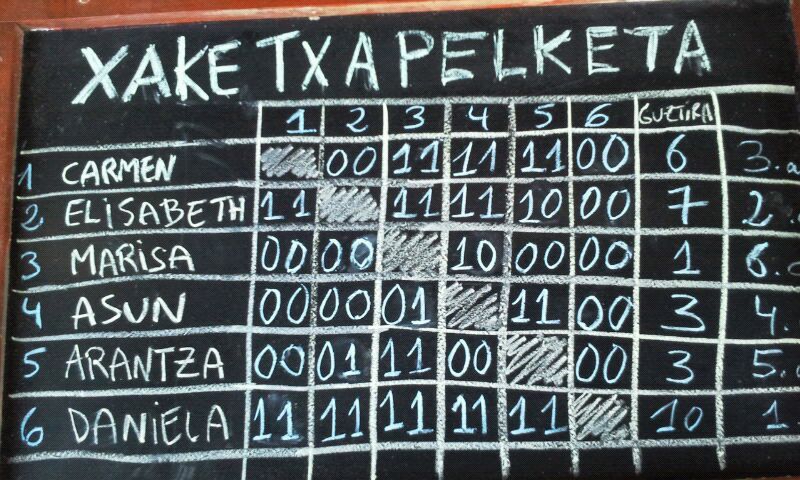 XAKE TXAPELKETA
1 2 3 4 5 6 GUZTIRA
1 CARMEN 00 11 11 11 00 6 3.a
2 ELISABETH 11 11 11 10 00 7 2.
3 MARISA 00 00 10 00 00 1 6.
4 ASUN 00 00 01 11 00 3 4.
5 ARANTZA 00 01 11 00 00 3 5.
6 DANIELA 11 11 11 11 11 10 1.